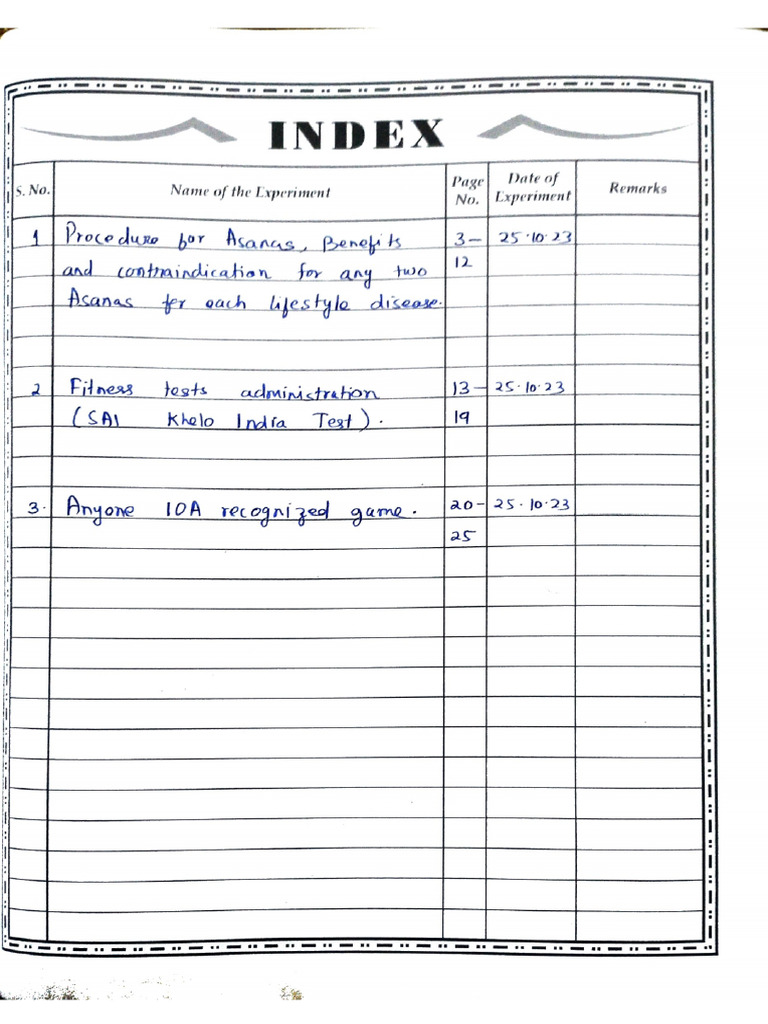 INDEX
S. No. Name of the Experiment Page No. Date of Experiment Remarks
1 Procedure for Asanas, Benefits 3- 25.10.23
and contraindication for any two 12
Asanas for each lifestyle disease.
2 Fitness tests administration 13- 25.10.23
(SAI Khelo India Test). 19
3. Anyone IOA recognized game. 20- 25.10.23
25